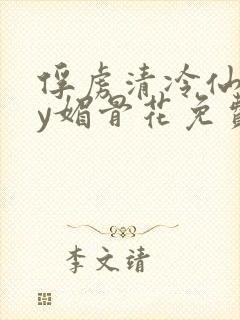 俘虏清冷仙
y媚骨花免费
李文靖